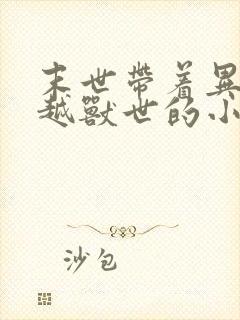 末世带着異
越獸世的小
沙包